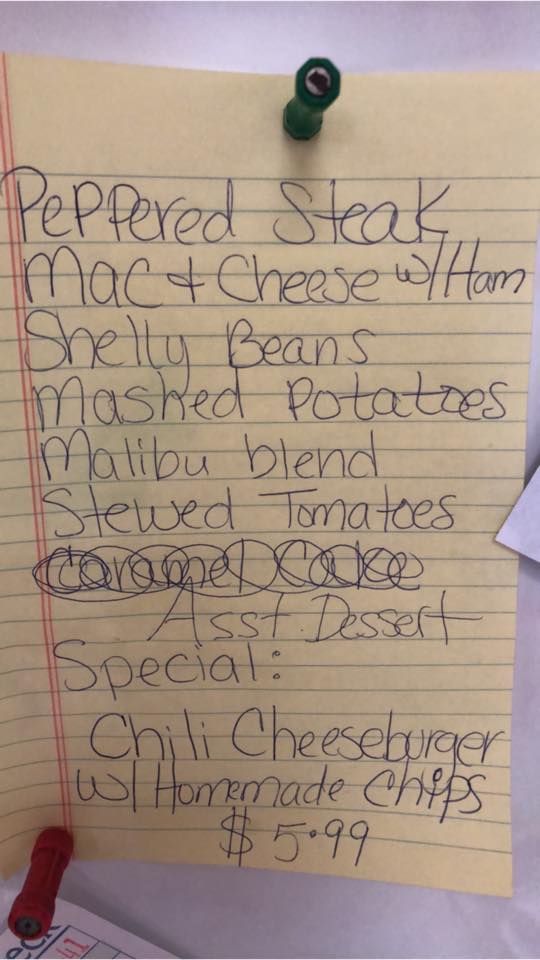 PePPered Steak
Mac + Cheese w/Ham
Shelly Beans
Mashed Potatoes
Malibu blend
Stewed Tomatoes
Caramel Cake
Asst. Dessert
Special:
Chili Cheeseburger
w/Homemade Chips
$5.99